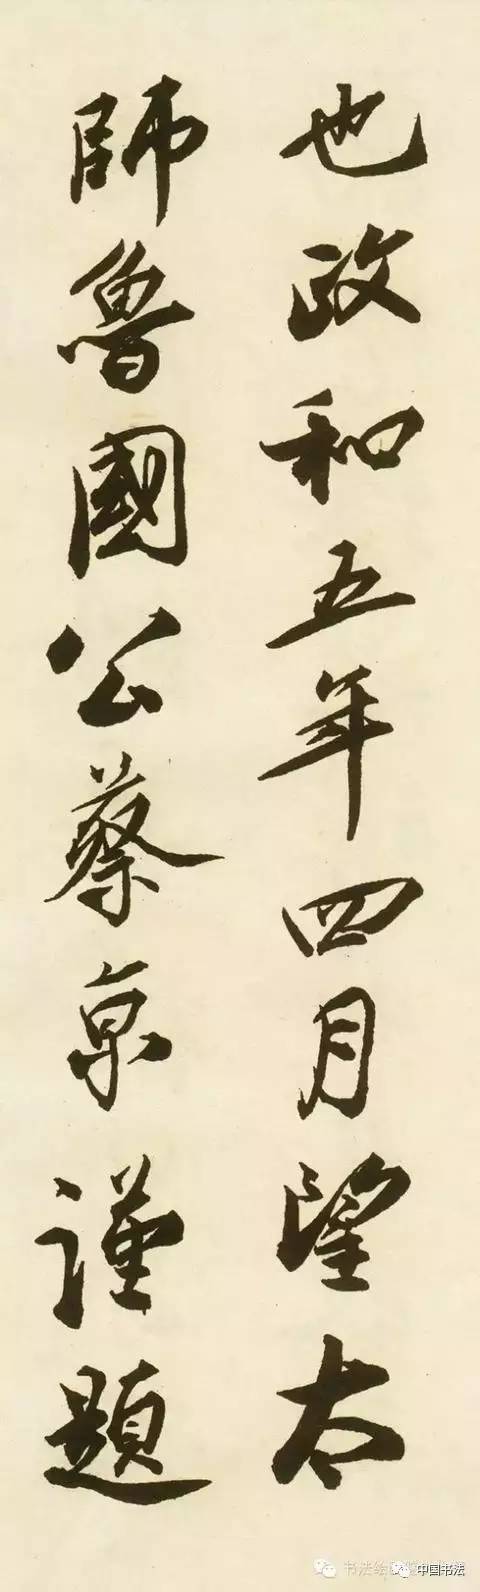 也政和五年四月望太
師魯國公蔡京謹題
中国书法